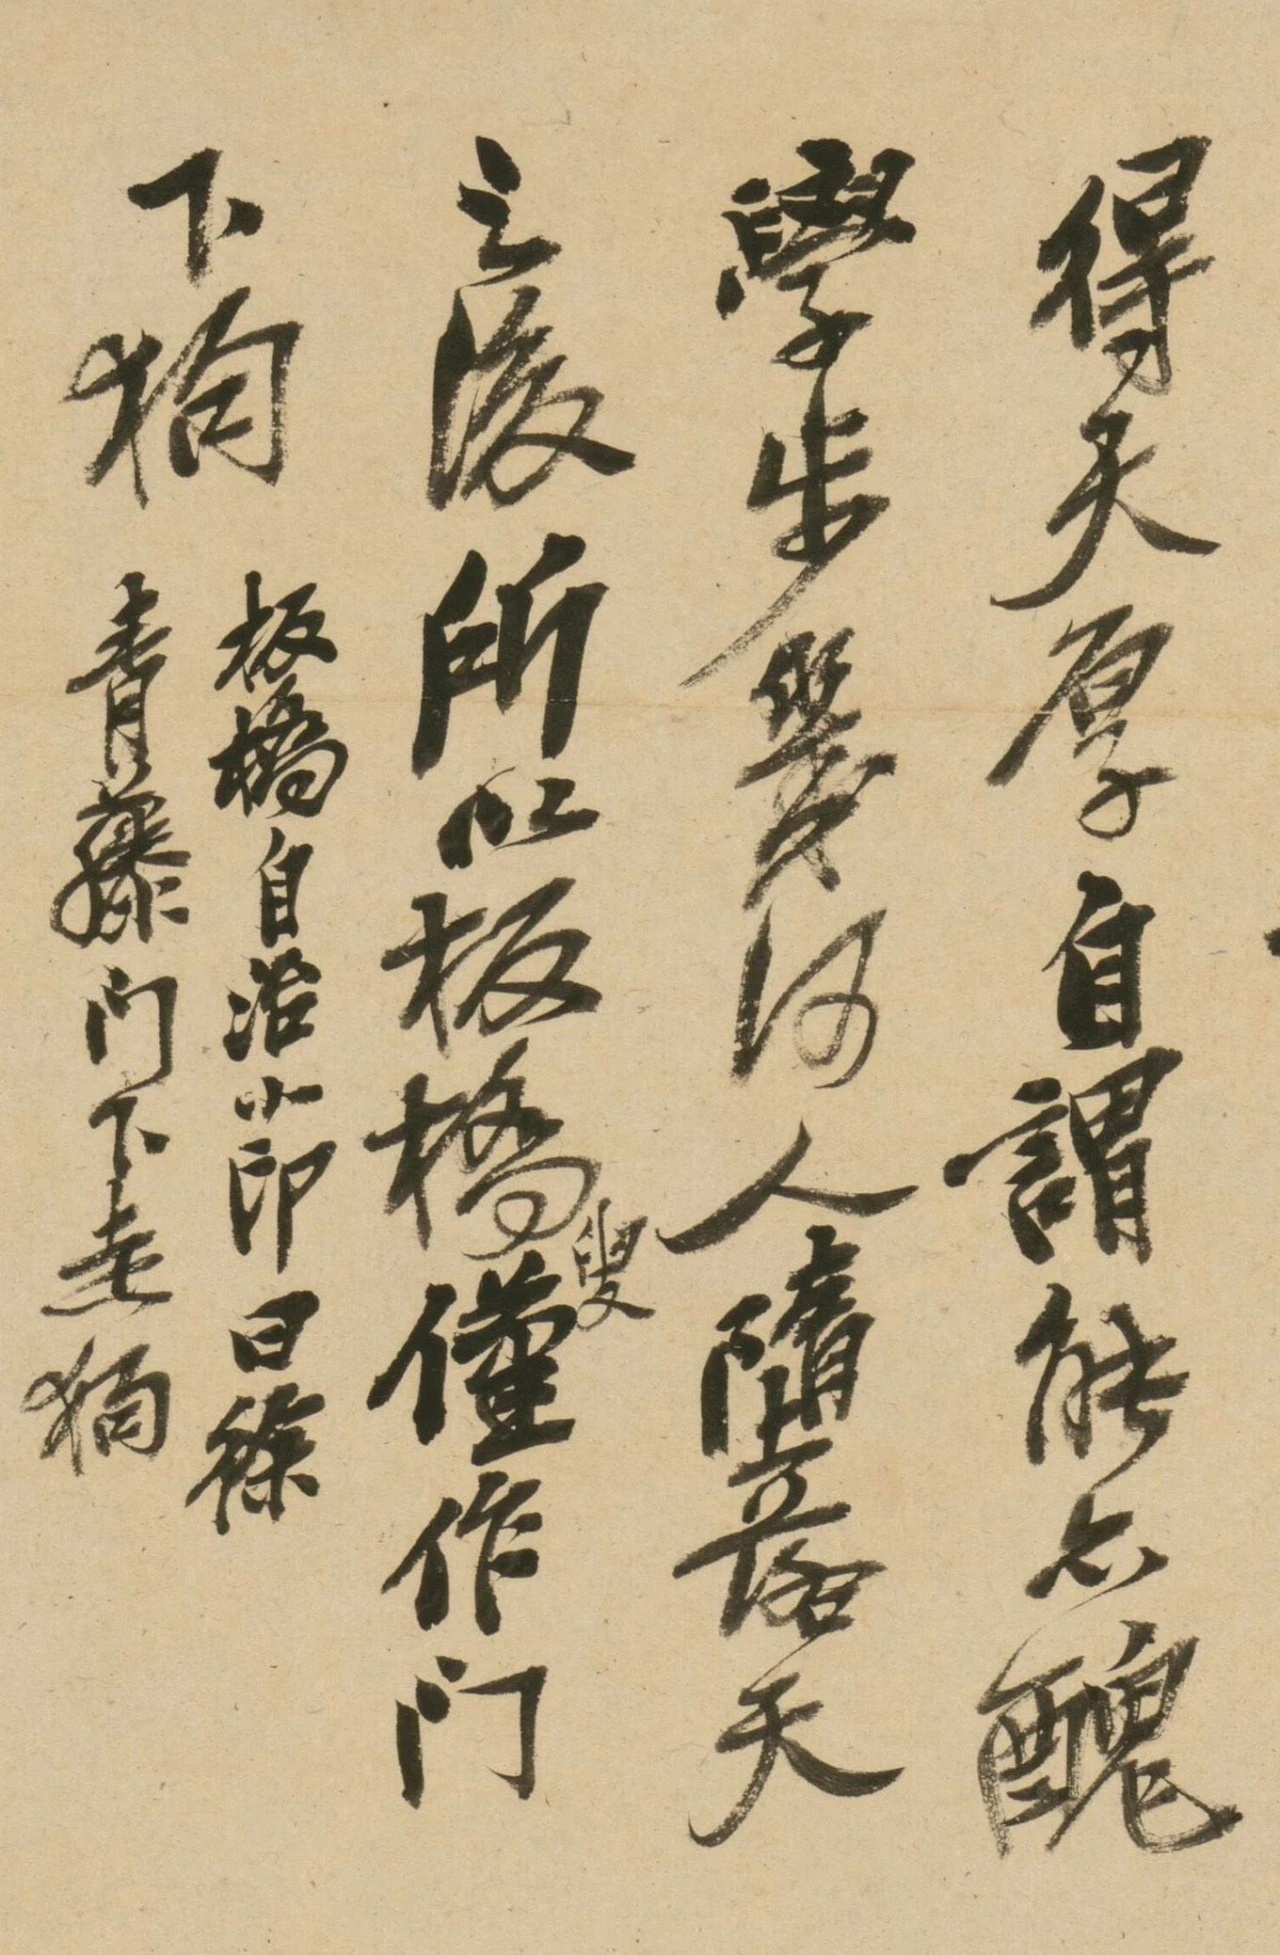 得天厚自謂能醜
學步幾何人墮落天
之後所以板橋叟僅作門
下狗
板橋自治小印曰徐
青藤门下走狗